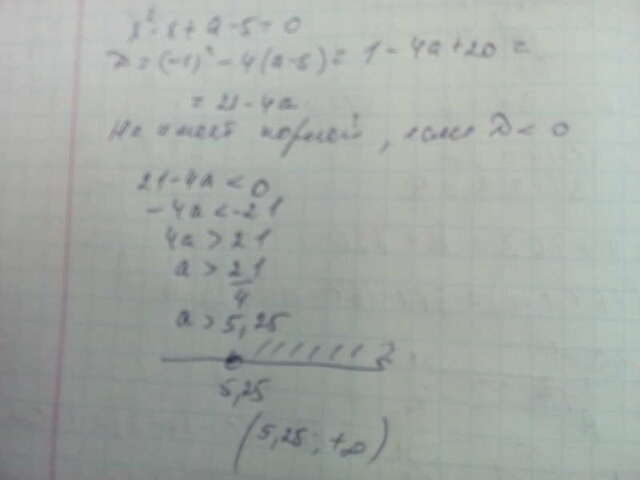 x² - x + a - 5 = 0
D = (-1)² - 4(a-5) = 1 - 4a + 20 =
= 21 - 4a
Не имеет корней, если D < 0
21 - 4a < 0
- 4a < -21
4a > 21
a > 21/4
a > 5,25
5,25
(5,25; +∞)